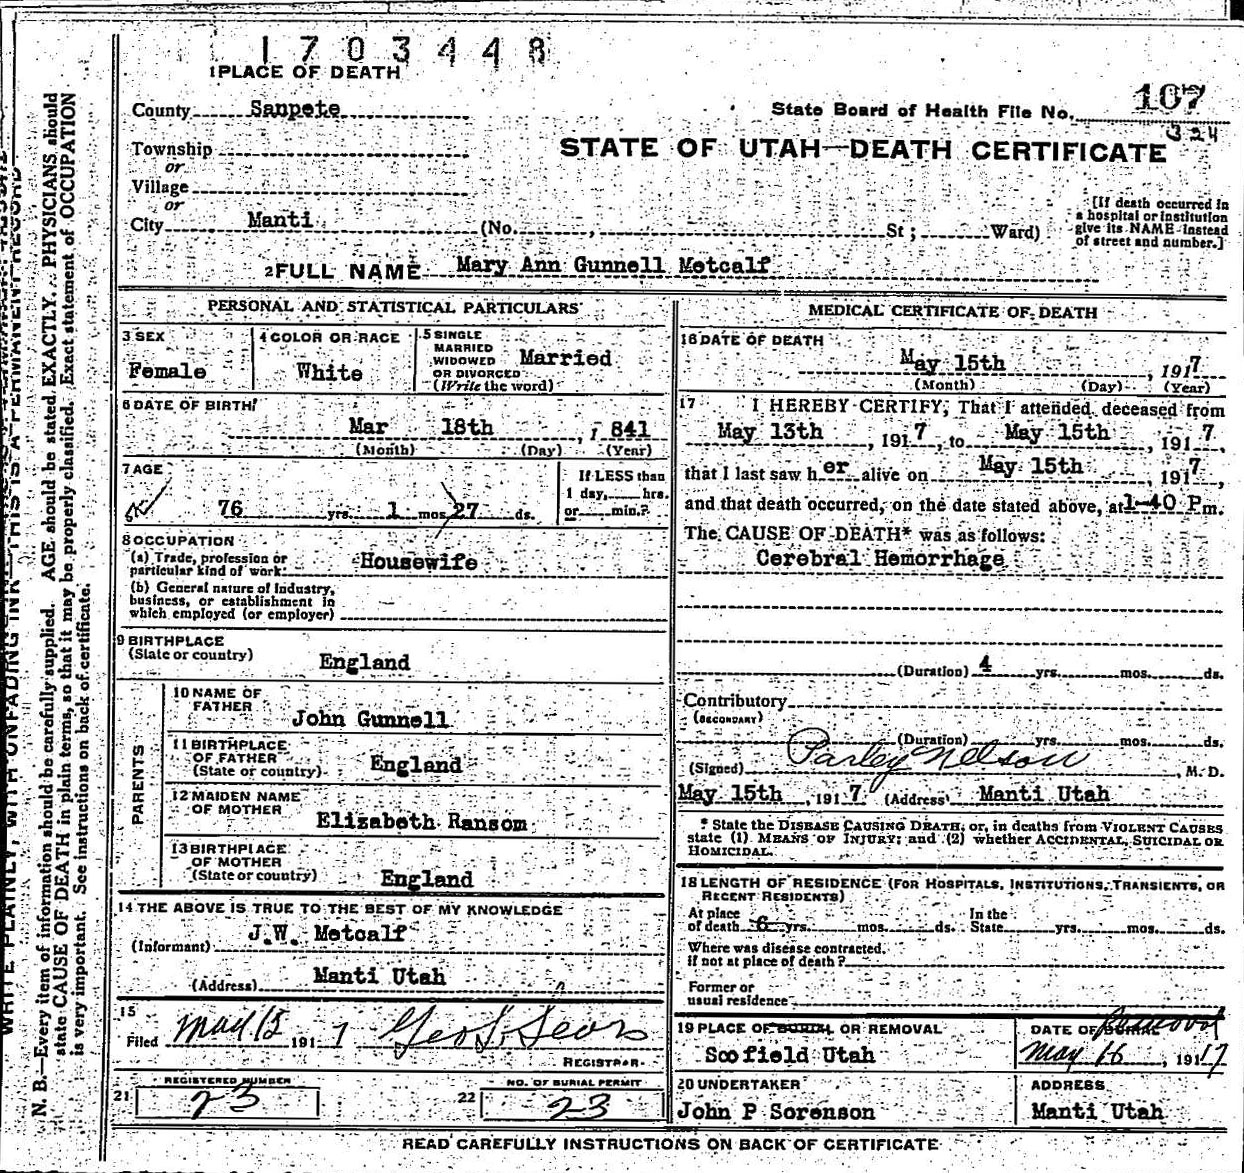 1703448
1 PLACE OF DEATH
County Sanpete
State Board of Health File No. 107
324
Township
or
STATE OF UTAH—DEATH CERTIFICATE
Village
or
City Manti (No. , St ; Ward)
[If death occurred in
a hospital or institution
give its NAME instead
of street and number.]
2 FULL NAME Mary Ann Gunnell Metcalf
PERSONAL AND STATISTICAL PARTICULARS
3 SEX
Female
4 COLOR OR RACE
White
5 SINGLE
MARRIED
WIDOWED
OR DIVORCED
(Write the word)
Married
6 DATE OF BIRTH
Mar 18th , 1 841
(Month) (Day) (Year)
7 AGE
76 yrs. 1 mos. 27 ds.
If LESS than
1 day, hrs.
or min.?
8 OCCUPATION
(a) Trade, profession or
particular kind of work.
Housewife
(b) General nature of Industry,
business, or establishment in
which employed (or employer)
9 BIRTHPLACE
(State or country)
England
PARENTS
10 NAME OF
FATHER
John Gunnell
11 BIRTHPLACE
OF FATHER
(State or country)
England
12 MAIDEN NAME
OF MOTHER
Elizabeth Ransom
13 BIRTHPLACE
OF MOTHER
(State or country)
England
14 THE ABOVE IS TRUE TO THE BEST OF MY KNOWLEDGE
(Informant) J.W. Metcalf
(Address) Manti Utah
15
Filed May 15 191 7 Geo S. Sears
REGISTRAR
21 REGISTERED NUMBER
23
22 NO. OF BURIAL PERMIT
23
MEDICAL CERTIFICATE OF DEATH
16 DATE OF DEATH
May 15th , 1917
(Month) (Day) (Year)
17 I HEREBY CERTIFY, That I attended deceased from
May 13th , 191 7, to May 15th , 191 7
that I last saw h er alive on May 15th , 191 7,
and that death occurred, on the date stated above, at 1-40 P m.
The CAUSE OF DEATH* was as follows:
Cerebral Hemorrhage
(Duration) 4 yrs. mos. ds.
Contributory
(SECONDARY)
(Duration) yrs. mos. ds.
(Signed) Parley Nelson , M. D.
May 15th , 191 7 (Address) Manti Utah
* State the DISEASE CAUSING DEATH, or, in deaths from VIOLENT CAUSES
state (1) MEANS OF INJURY; and (2) whether ACCIDENTAL, SUICIDAL OR
HOMICIDAL.
18 LENGTH OF RESIDENCE (FOR HOSPITALS, INSTITUTIONS, TRANSIENTS, OR
RECENT RESIDENTS)
At place
of death 6 yrs. mos. ds.
In the
State yrs. mos. ds.
Where was disease contracted,
if not at place of death?
Former or
usual residence
19 PLACE OF BURIAL OR REMOVAL
Scofield Utah
DATE OF BURIAL Removal
May 16 , 19117
20 UNDERTAKER
John P Sorenson
ADDRESS
Manti Utah
READ CAREFULLY INSTRUCTIONS ON BACK OF CERTIFICATE
WRITE PLAINLY, WITH UNFADING INK—THIS IS A PERMANENT RECORD
N. B.—Every item of information should be carefully supplied. AGE should be stated EXACTLY. PHYSICIANS should
state CAUSE OF DEATH in plain terms, so that it may be properly classified. Exact statement of OCCUPATION
is very important. See instructions on back of certificate.